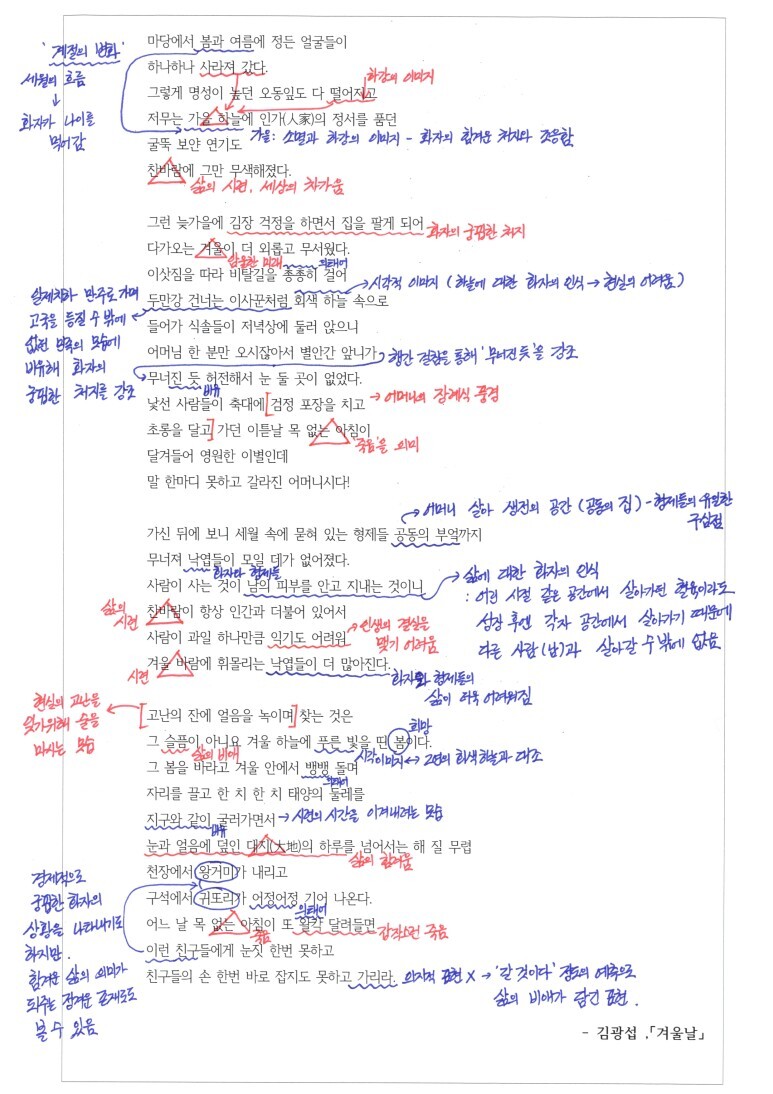 마당에서 봄과 여름에 정든 얼굴들이
'계절의 변화'
하나하나 사라져 갔다.
세월의 흐름
↓
화자가 나이를
먹어감
하강의 이미지
그렇게 명성이 높던 오동잎도 다 떨어지고
저무는 가을 하늘에 인가(人家)의 정서를 품던
가을: 소멸과 하강의 이미지 - 화자의 힘겨운 처지와 조응함
굴뚝 보얀 연기도
찬바람에 그만 무색해졌다.
삶의 시련, 세상의 차가움
그런 늦가을에 김장 걱정을 하면서 집을 팔게 되어
화자의 궁핍한 처지
다가오는 겨울이 더 외롭고 무서웠다.
암울한 미래
의태어
이삿짐을 따라 비탈길을 총총히 걸어
→시각적 이미지 (하늘에 대한 화자의 인식→현실의 어려움)
두만강 건너는 이사꾼처럼 회색 하늘 속으로
일제치하 만주로 가며
고국을 등질 수 밖에
없던 민족의 모습에
비유해 화자의
궁핍한 처지를 강조
들어가 식솔들이 저녁상에 둘러 앉으니
어머님 한 분만 오시잖아서 별안간 앞니가
행간 걸침을 통해 '무너진 듯'을 강조
무너진 듯 허전해서 눈 둘 곳이 없었다.
비유
낯선 사람들이 축대에[검정 포장을 치고
→어머니의 장례식 풍경
초롱을 달고]가던 이튿날 목 없는 아침이
'죽음'을 의미
달겨들어 영원한 이별인데
말 한마디 못하고 갈라진 어머니시다!
→어머니 살아 생전의 공간 (공동의 집) - 형제들의 유일한
구심점
가신 뒤에 보니 세월 속에 묻혀 있는 형제들 공동의 부엌까지
무너져 낙엽들이 모일 데가 없어졌다.
화자와 형제들
사람이 사는 것이 남의 피부를 안고 지내는 것이니
→삶에 대한 화자의 인식
: 어린 시절 같은 공간에서 살아가던 혈육이라도
성장 후엔 각자 공간에서 살아가기 때문에
다른 사람(남)과 살아갈 수 밖에 없음
삶의
시련
찬바람이 항상 인간과 더불어 있어서
사람이 과일 하나만큼 익기도 어려워
→인생의 결실을
맺기 어려움
겨울 바람에 휘몰리는 낙엽들이 더 많아진다.
시련
화자와 형제들의
삶이 더욱 어려워짐
현실의 고난을
잊기위해 술을
마시는 모습
[고난의 잔에 얼음을 녹이며]찾는 것은
희망
그 슬픔이 아니요 겨울 하늘에 푸른 빛을 띤 봄이다.
삶의 비애
시각이미지↔2연의 회색하늘과 대조
그 봄을 바라고 겨울 안에서 뱅뱅 돌며
의태어
자리를 끌고 한 치 한 치 태양의 둘레를
지구와 같이 굴러가면서
→시련의 시간을 이겨내려는 모습
비유
눈과 얼음에 덮인 대지(大地)의 하루를 넘어서는 해 질 무렵
삶의 힘겨움
천장에서 왕거미가 내리고
구석에서 귀또리가 어정어정 기어 나온다.
의태어
어느 날 목 없는 아침이 또 왈칵 달려들면
죽음
갑작스런 죽음
이런 친구들에게 눈짓 한번 못하고
친구들의 손 한번 바로 잡지도 못하고 가리라.
의지적 표현 X →'갈 것이다' 정도의 예측으로
삶의 비애가 담긴 표현.
경제적으로
궁핍한 화자의
상황을 나타내기도
하지만.
힘겨운 삶의 의미가
되주는 정겨운 존재로도
볼 수 있음
- 김광섭 ,「겨울날」